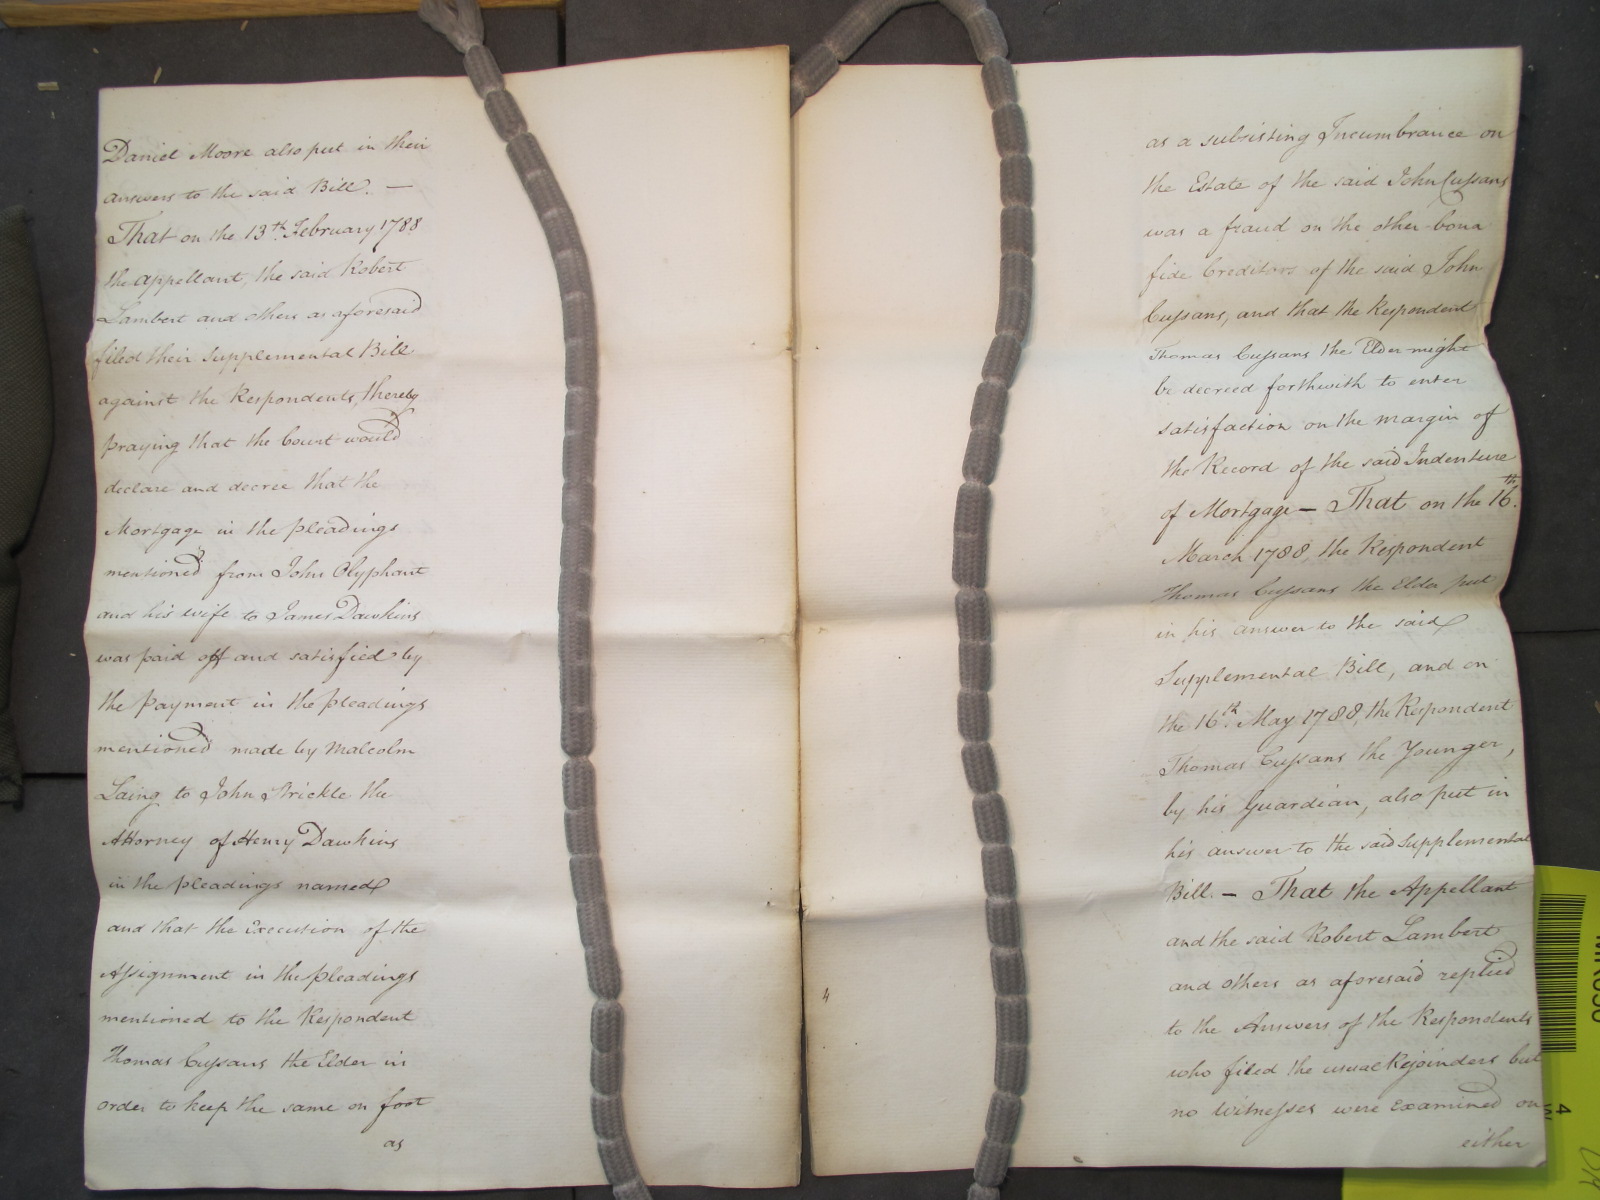 Daniel Moore also put in their
answers to the said Bill. —
That on the 13th. February 1788
the Appellant, the said Robert
Lambert and others as aforesaid
filed their Supplemental Bill
against the Respondents, thereby
praying that the Court would
declare and decree that the
Mortgage in the pleadings
mentioned from John Olyphant
and his wife to James Dawkins
was paid off and satisfied by
the Payment in the pleadings
mentioned made by Malcolm
Laing to John Strickle the
Attorney of Henry Dawkins
in the pleadings named
and that the Execution of the
Assignment in the pleadings
mentioned to the Respondent
Thomas Cussans the Elder in
order to keep the same on foot
as
as a subsisting Incumbrance on
the Estate of the said John Cussans
was a fraud on the other bona
fide Creditors of the said John
Cussans, and that the Respondent
Thomas Cussans the Elder might
be decreed forthwith to enter
satisfaction on the margin of
the Record of the said Indenture
of Mortgage — That on the 16th.
March 1788, the Respondent
Thomas Cussans the Elder put
in his answer to the said
Supplemental Bill, and on
the 16th. May 1788, the Respondent
Thomas Cussans the Younger,
by his Guardian, also put in
his answer to the said Supplemental
Bill. — That the Appellant
and the said Robert Lambert
and others as aforesaid replied
to the Answers of the Respondents
who filed the usual Rejoinders but
no Witnesses were Examined on
either
4
4